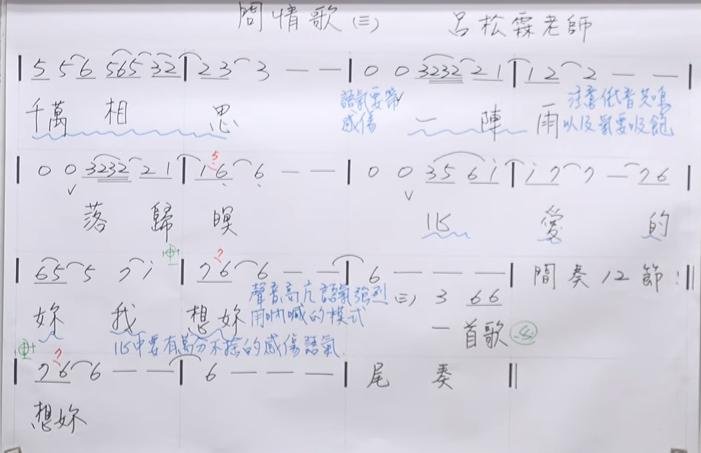 問情歌 (三) 呂松霖老師
| 5 5 6 565 32 | 2 3 3 — — | 0 0 3232 2 1 | 1 2 2 — — |
千萬 相 思 語氣要帶感傷 一 陣 雨 注意低音共鳴以及氣要吸飽
| 0 0 3232 2 1 | 1 6 6 — — | 0 0 3 5 6 i | i 7 7 — 7 6 |
落 歸 暝 心 愛 的
| 65 5 7 i | 7 6 6 — — | 6 — — — — | 間奏12節 :||
妳 我 想妳 聲音高亢語氣強烈用吶喊的模式 (三) 3 66
心中要有萬分不捨的感傷語氣 一首歌
| 7 6 6 — — | 6 — — — | 尾 奏 ||
想妳